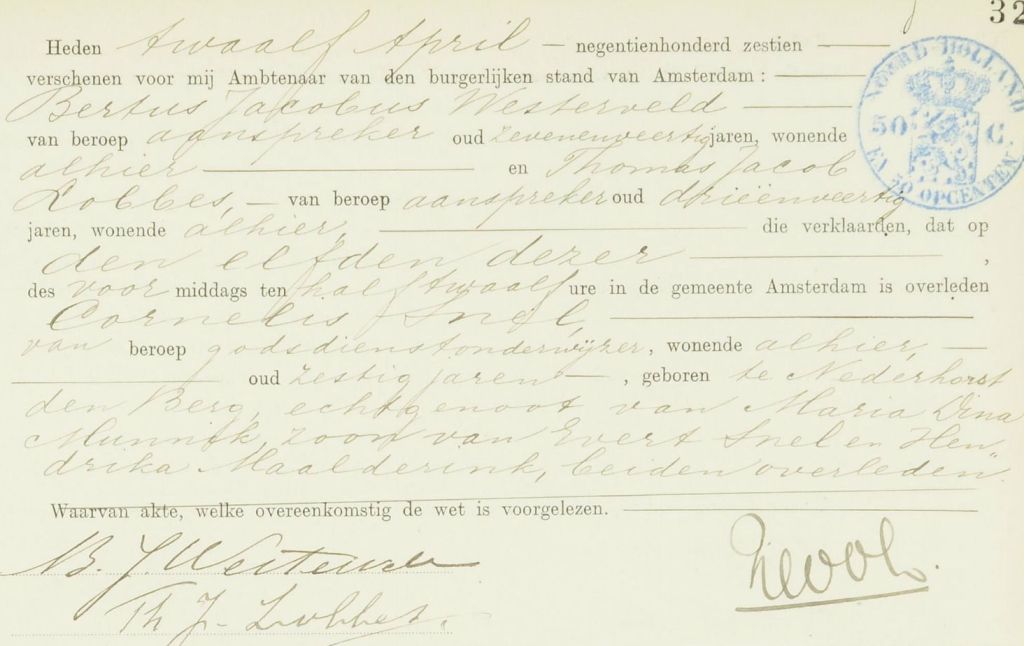 32
Heden twaalf April — negentienhonderd zestien
verschenen voor mij Ambtenaar van den burgerlijken stand van Amsterdam :
Bertus Jacobus Westerveld
van beroep aanspreker oud zevenenveertig jaren, wonende
alhier en Thomas Jacob
Lobbes, — van beroep aanspreker oud drieënveertig
jaren, wonende alhier, die verklaarden, dat op
den elfden dezer ,
des voor middags ten half twaalf ure in de gemeente Amsterdam is overleden
Cornelis Snel,
van beroep godsdienstonderwijzer, wonende alhier, —
oud zestig jaren — , geboren te Nederhorst
den Berg, echtgenoot van Maria Dina
Munnik, zoon van Evert Snel en Hen„
drika Maalderink, beiden overleden.
Waarvan akte, welke overeenkomstig de wet is voorgelezen.
B. J. Westerveld
Th J. Lobbes.
NOORD-HOLLAND
50 C.
EN 50 OPCENTEN.